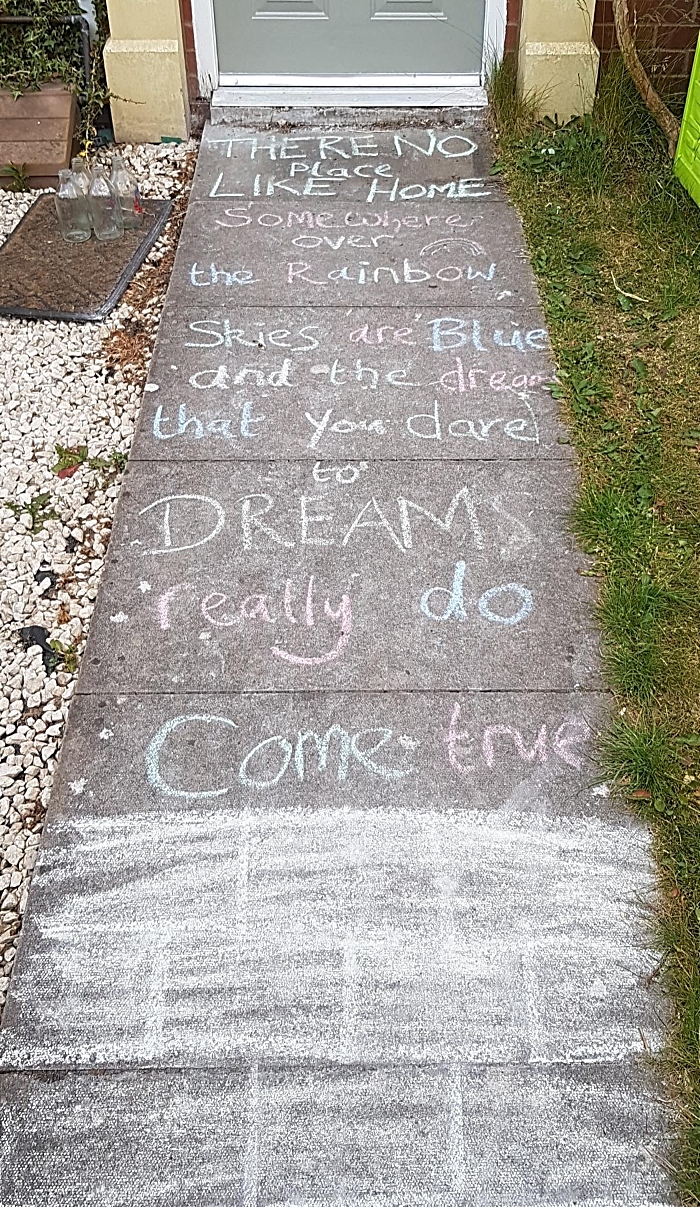 THERE NO
place
LIKE HOME
Somewhere
over
the Rainbow
Skies are Blue
and the dream
that you dare
to
DREAMS
really do
Come true